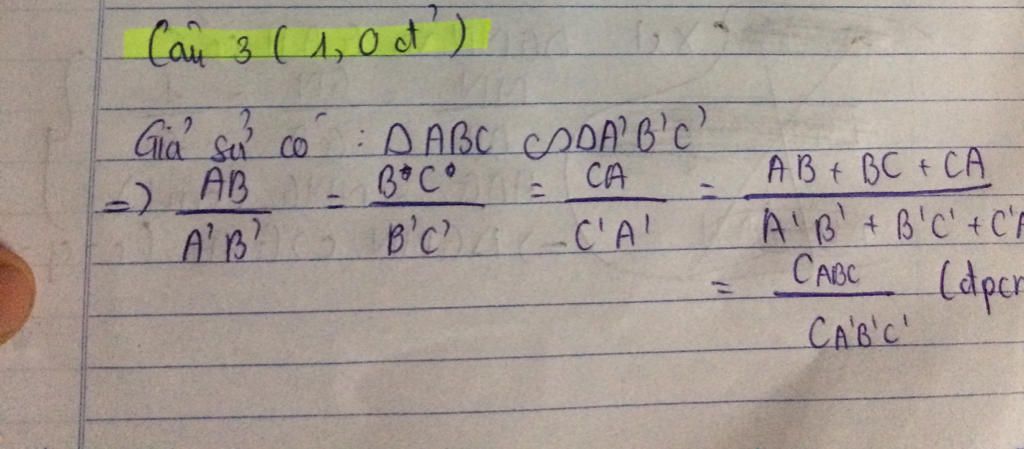 Câu 3 (1,0 đ)
Giả sử có : ΔABC ∽ ΔA'B'C'
=) AB/A'B' = BC/B'C' = CA/C'A' = AB + BC + CA/A'B' + B'C' + C'A
= CABC/CA'B'C' (đpcm